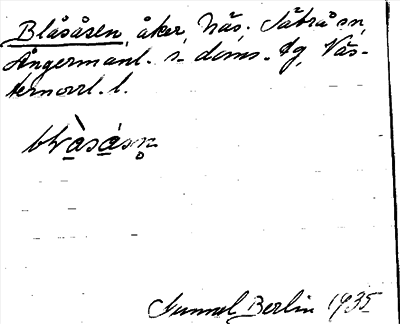 Blåsåsen, åker, Näs, Säbrå sn,
Ångermanl. s. doms. tg, Väs-
ternorrl. l.
blòasásn̥
Gunnel Berlin 1935